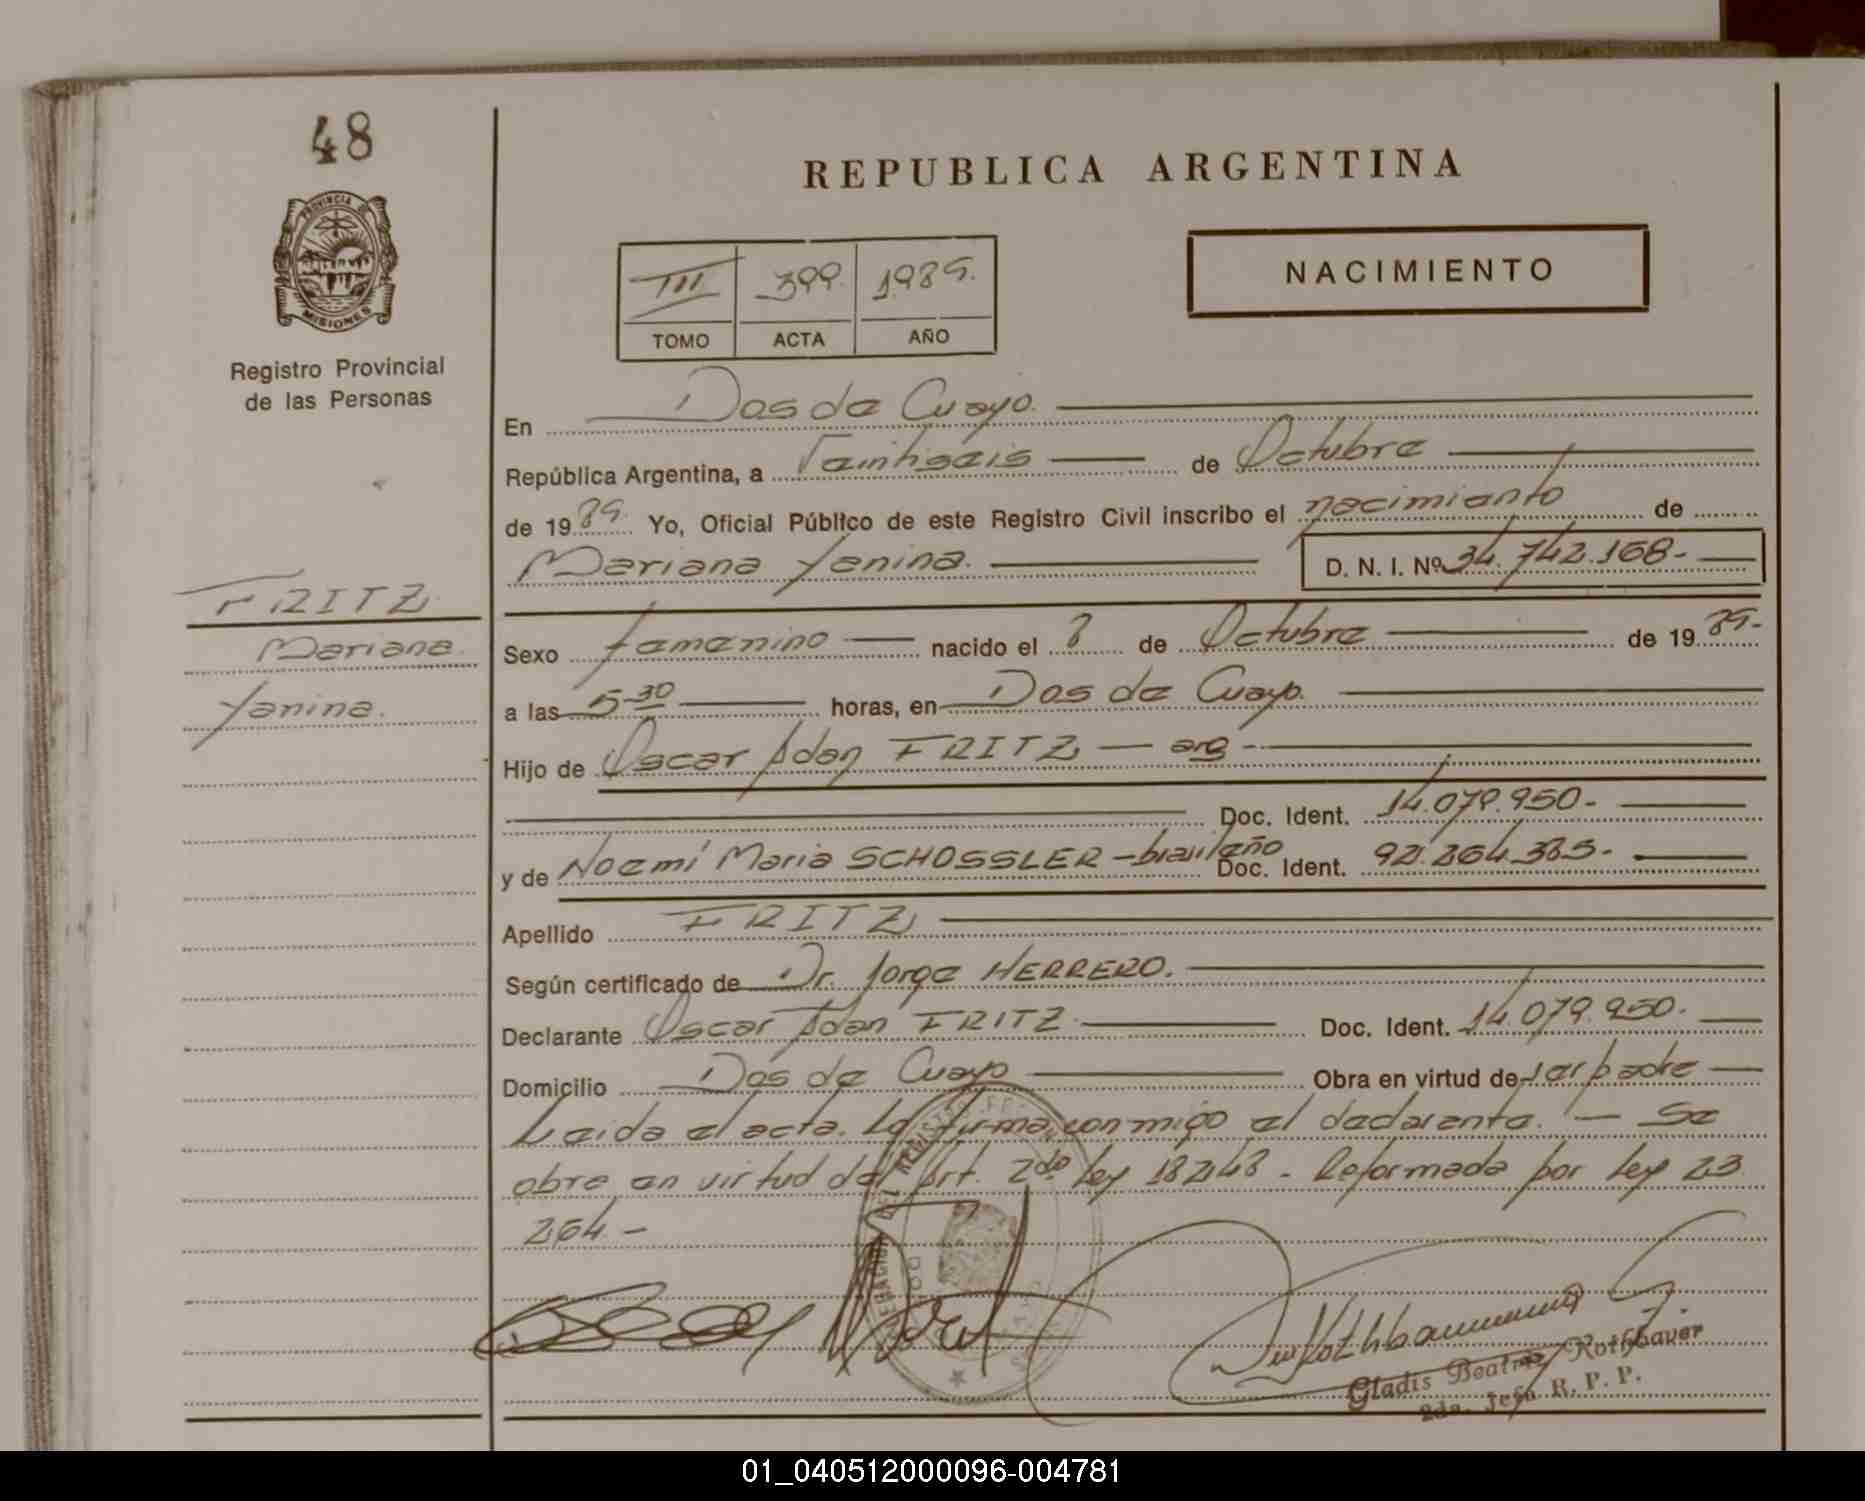 48
PROVINCIA DE
MISIONES
Registro Provincial
de las Personas
FRITZ
Mariana
Yanina.
REPUBLICA ARGENTINA
NACIMIENTO
III 399. 1989.
TOMO ACTA AÑO
En Dos de Mayo.
República Argentina, a Veintiseis de Octubre
de 1989. Yo, Oficial Público de este Registro Civil inscribo el nacimiento de
Mariana Yanina. D. N. I. Nº 34.742.168-
Sexo femenino nacido el 8 de Octubre de 1989-
a las 5-30 horas, en Dos de Mayo.
Hijo de Oscar Adan FRITZ - arg -
Doc. Ident. 14.079.950-
y de Noemí Maria SCHOSSLER - brasileño Doc. Ident. 92.264.385-
Apellido FRITZ
Según certificado de Dr. Jorge HERRERO.
Declarante Oscar Adan FRITZ Doc. Ident. 14.079.950-
Domicilio Dos de Mayo Obra en virtud de ser padre
Leida el acta. La firma conmigo el declarante. - Se
obra en virtud del Art. 2do. Ley 18248 - Reformada por Ley 23
264 -
Gladis Beatriz Rothbauer
2da. Jefa R. P. P.
01_040512000096-004781